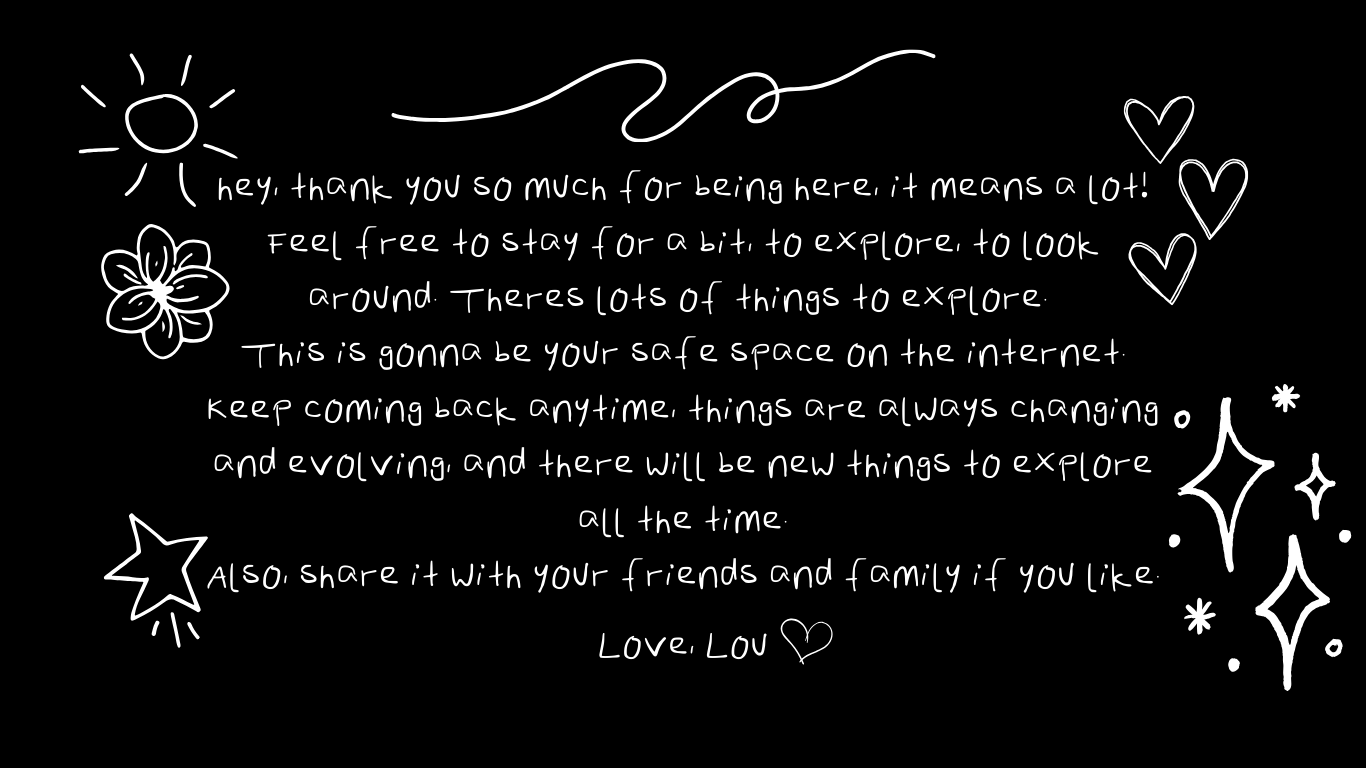 hey, thank you so much for being here, it means a lot!
Feel free to stay for a bit, to explore, to look
around. Theres lots of things to explore.
This is gonna be your safe space on the internet.
Keep coming back anytime, things are always changing
and evolving, and there will be new things to explore
all the time.
Also, share it with your friends and family if you like.
Love, Lou